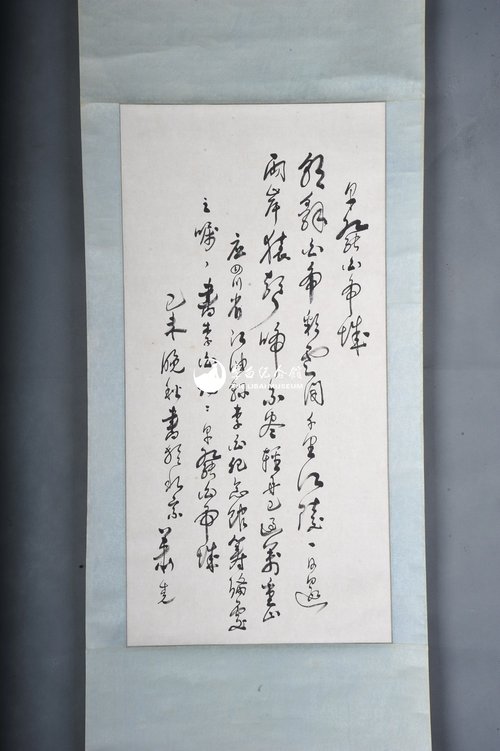 早發白帝城
朝辭白帝彩雲間千里江陵一日還
兩岸猿聲啼不尽輕舟已過萬重山
应四川省江油縣李白纪念馆籌備處
之嘱、書李白詩：早發白帝城
己未晚秋書於北京
李白纪念馆
LIBAI MUSEUM